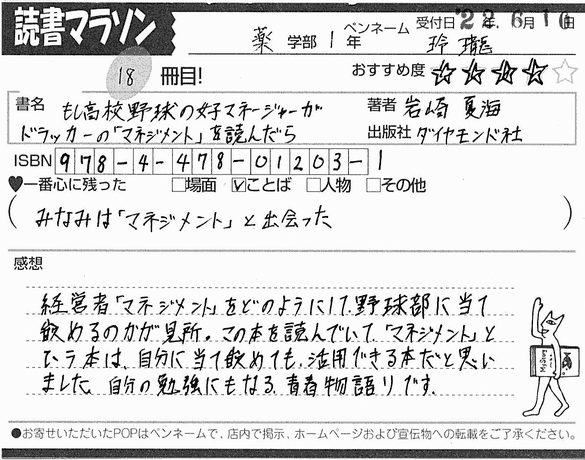 読書マラソン
薬 学部 1 年 ペンネーム 玲瓏 受付日 '22年. 6月16日
18 冊目! おすすめ度 ☆☆☆☆☆
書名 もし高校野球の女子マネージャーが
ドラッカーの「マネジメント」を読んだら
著者 岩崎 夏海
出版社 ダイヤモンド社
ISBN 978-4-478-01203-1
♥一番心に残った □場面 ☑ことば □人物 □その他
(みなみは「マネジメント」と出会った)
感想
経営者「マネジメント」をどのようにして、野球部に当て
嵌めるのかが見所。この本を読んでいて、「マネジメント」と
いう本は、自分に当て嵌めても、活用できる本だと思い
ました。自分の勉強にもなる、青春物語りです。
Mystery
●お寄せいただいたPOPはペンネームで、店内で掲示、ホームページおよび宣伝物への転載をご了承ください。